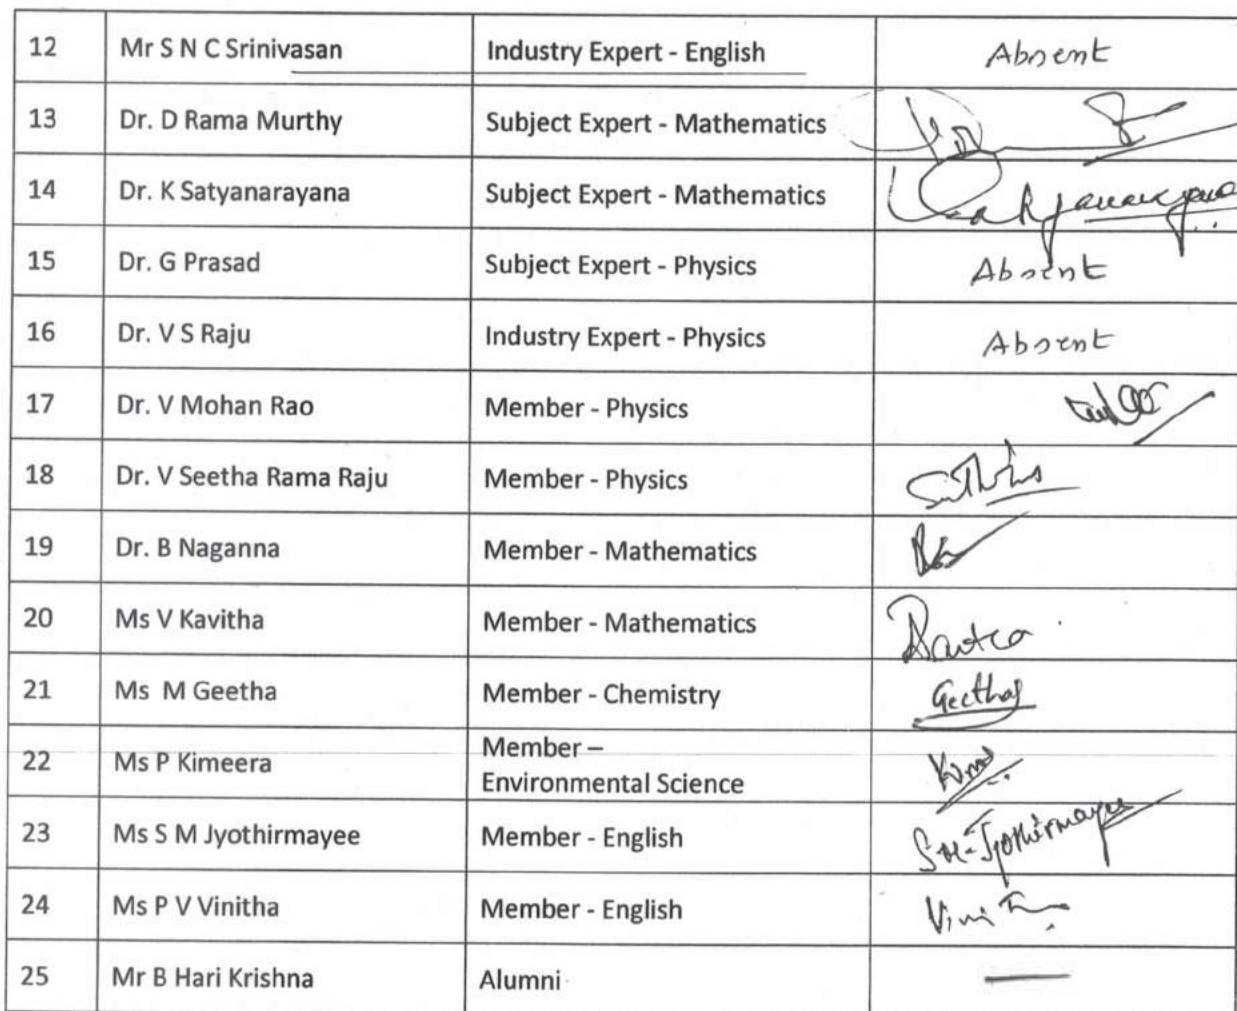 12 Mr S N C Srinivasan Industry Expert - English Absent
13 Dr. D Rama Murthy Subject Expert - Mathematics
14 Dr. K Satyanarayana Subject Expert - Mathematics
15 Dr. G Prasad Subject Expert - Physics Absent
16 Dr. V S Raju Industry Expert - Physics Absent
17 Dr. V Mohan Rao Member - Physics
18 Dr. V Seetha Rama Raju Member - Physics
19 Dr. B Naganna Member - Mathematics
20 Ms V Kavitha Member - Mathematics
21 Ms M Geetha Member - Chemistry Geetha
22 Ms P Kimeera Member –
Environmental Science
23 Ms S M Jyothirmayee Member - English S M Jyothirmayee
24 Ms P V Vinitha Member - English
25 Mr B Hari Krishna Alumni —